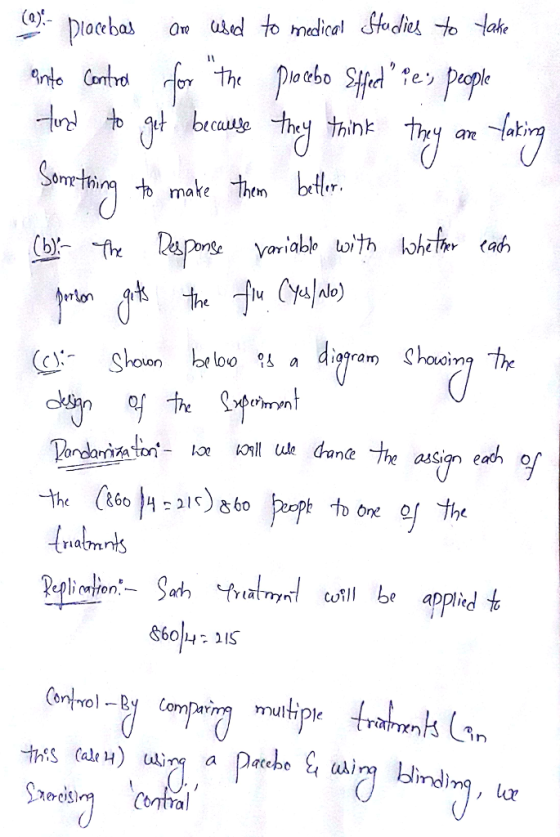 (a):- placebas are used to medical studies to take
into control for "the placebo Effect" ie., people
tend to get because they think they are taking
Something to make them better.
(b):- The Response variable with whether each
person gets the flu (Yes/No)
(c):- Shown below is a diagram showing the
design of the Experiment
Randamization:- we will use chance the assign each of
the (860/4 = 215) 860 people to one of the
triatments
Replication:- Each treatment will be applied to
860/4 = 215
Control - By comparing multiple tratments (in
this case 4) using a placebo & using blinding, we
Exercising 'control'